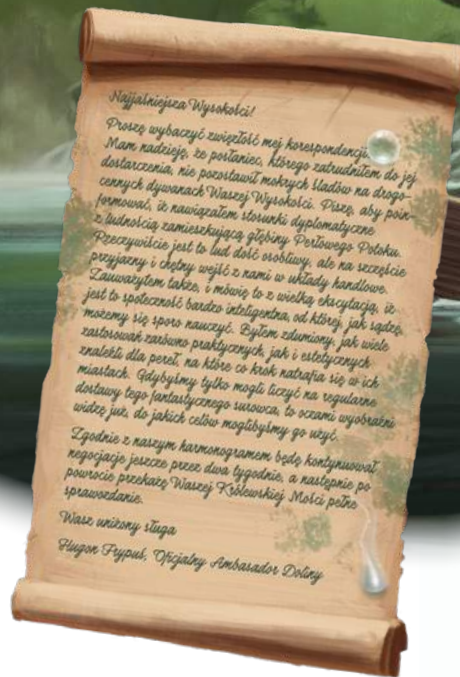 Najjaśniejsza Wysokości!
Proszę wybaczyć zwięzłość mej korespondencji.
Mam nadzieję, że posłaniec, którego zatrudniłem do jej
dostarczenia, nie pozostawił mokrych śladów na drogo-
cennych dywanach Waszej Wysokości. Piszę, aby poin-
formować, iż nawiązałem stosunki dyplomatyczne
z ludnością zamieszkującą głębiny Perłowego Potoku.
Rzeczywiście jest to lud dość osobliwy, ale na szczęście
przyjazny i chętny wejść z nami w układy handlowe.
Zauważyłem także, i mówię to z wielką ekscytacją, iż
jest to społeczność bardzo inteligentna, od której, jak sądzę,
możemy się sporo nauczyć. Byłem zdumiony, jak wiele
zastosowań zarówno praktycznych, jak i estetycznych
znaleźli dla pereł, na które co krok natrafia się w ich
miastach. Gdybyśmy tylko mogli liczyć na regularne
dostawy tego fantastycznego surowca, to oczami wyobraźni
widzę już, do jakich celów moglibyśmy go użyć.
Zgodnie z naszym harmonogramem będę kontynuował
negocjacje jeszcze przez dwa tygodnie, a następnie po
powrocie przekażę Waszej Królewskiej Mości pełne
sprawozdanie.
Wasz uniżony sługa
Hugon Frypuś, Oficjalny Ambasador Doliny